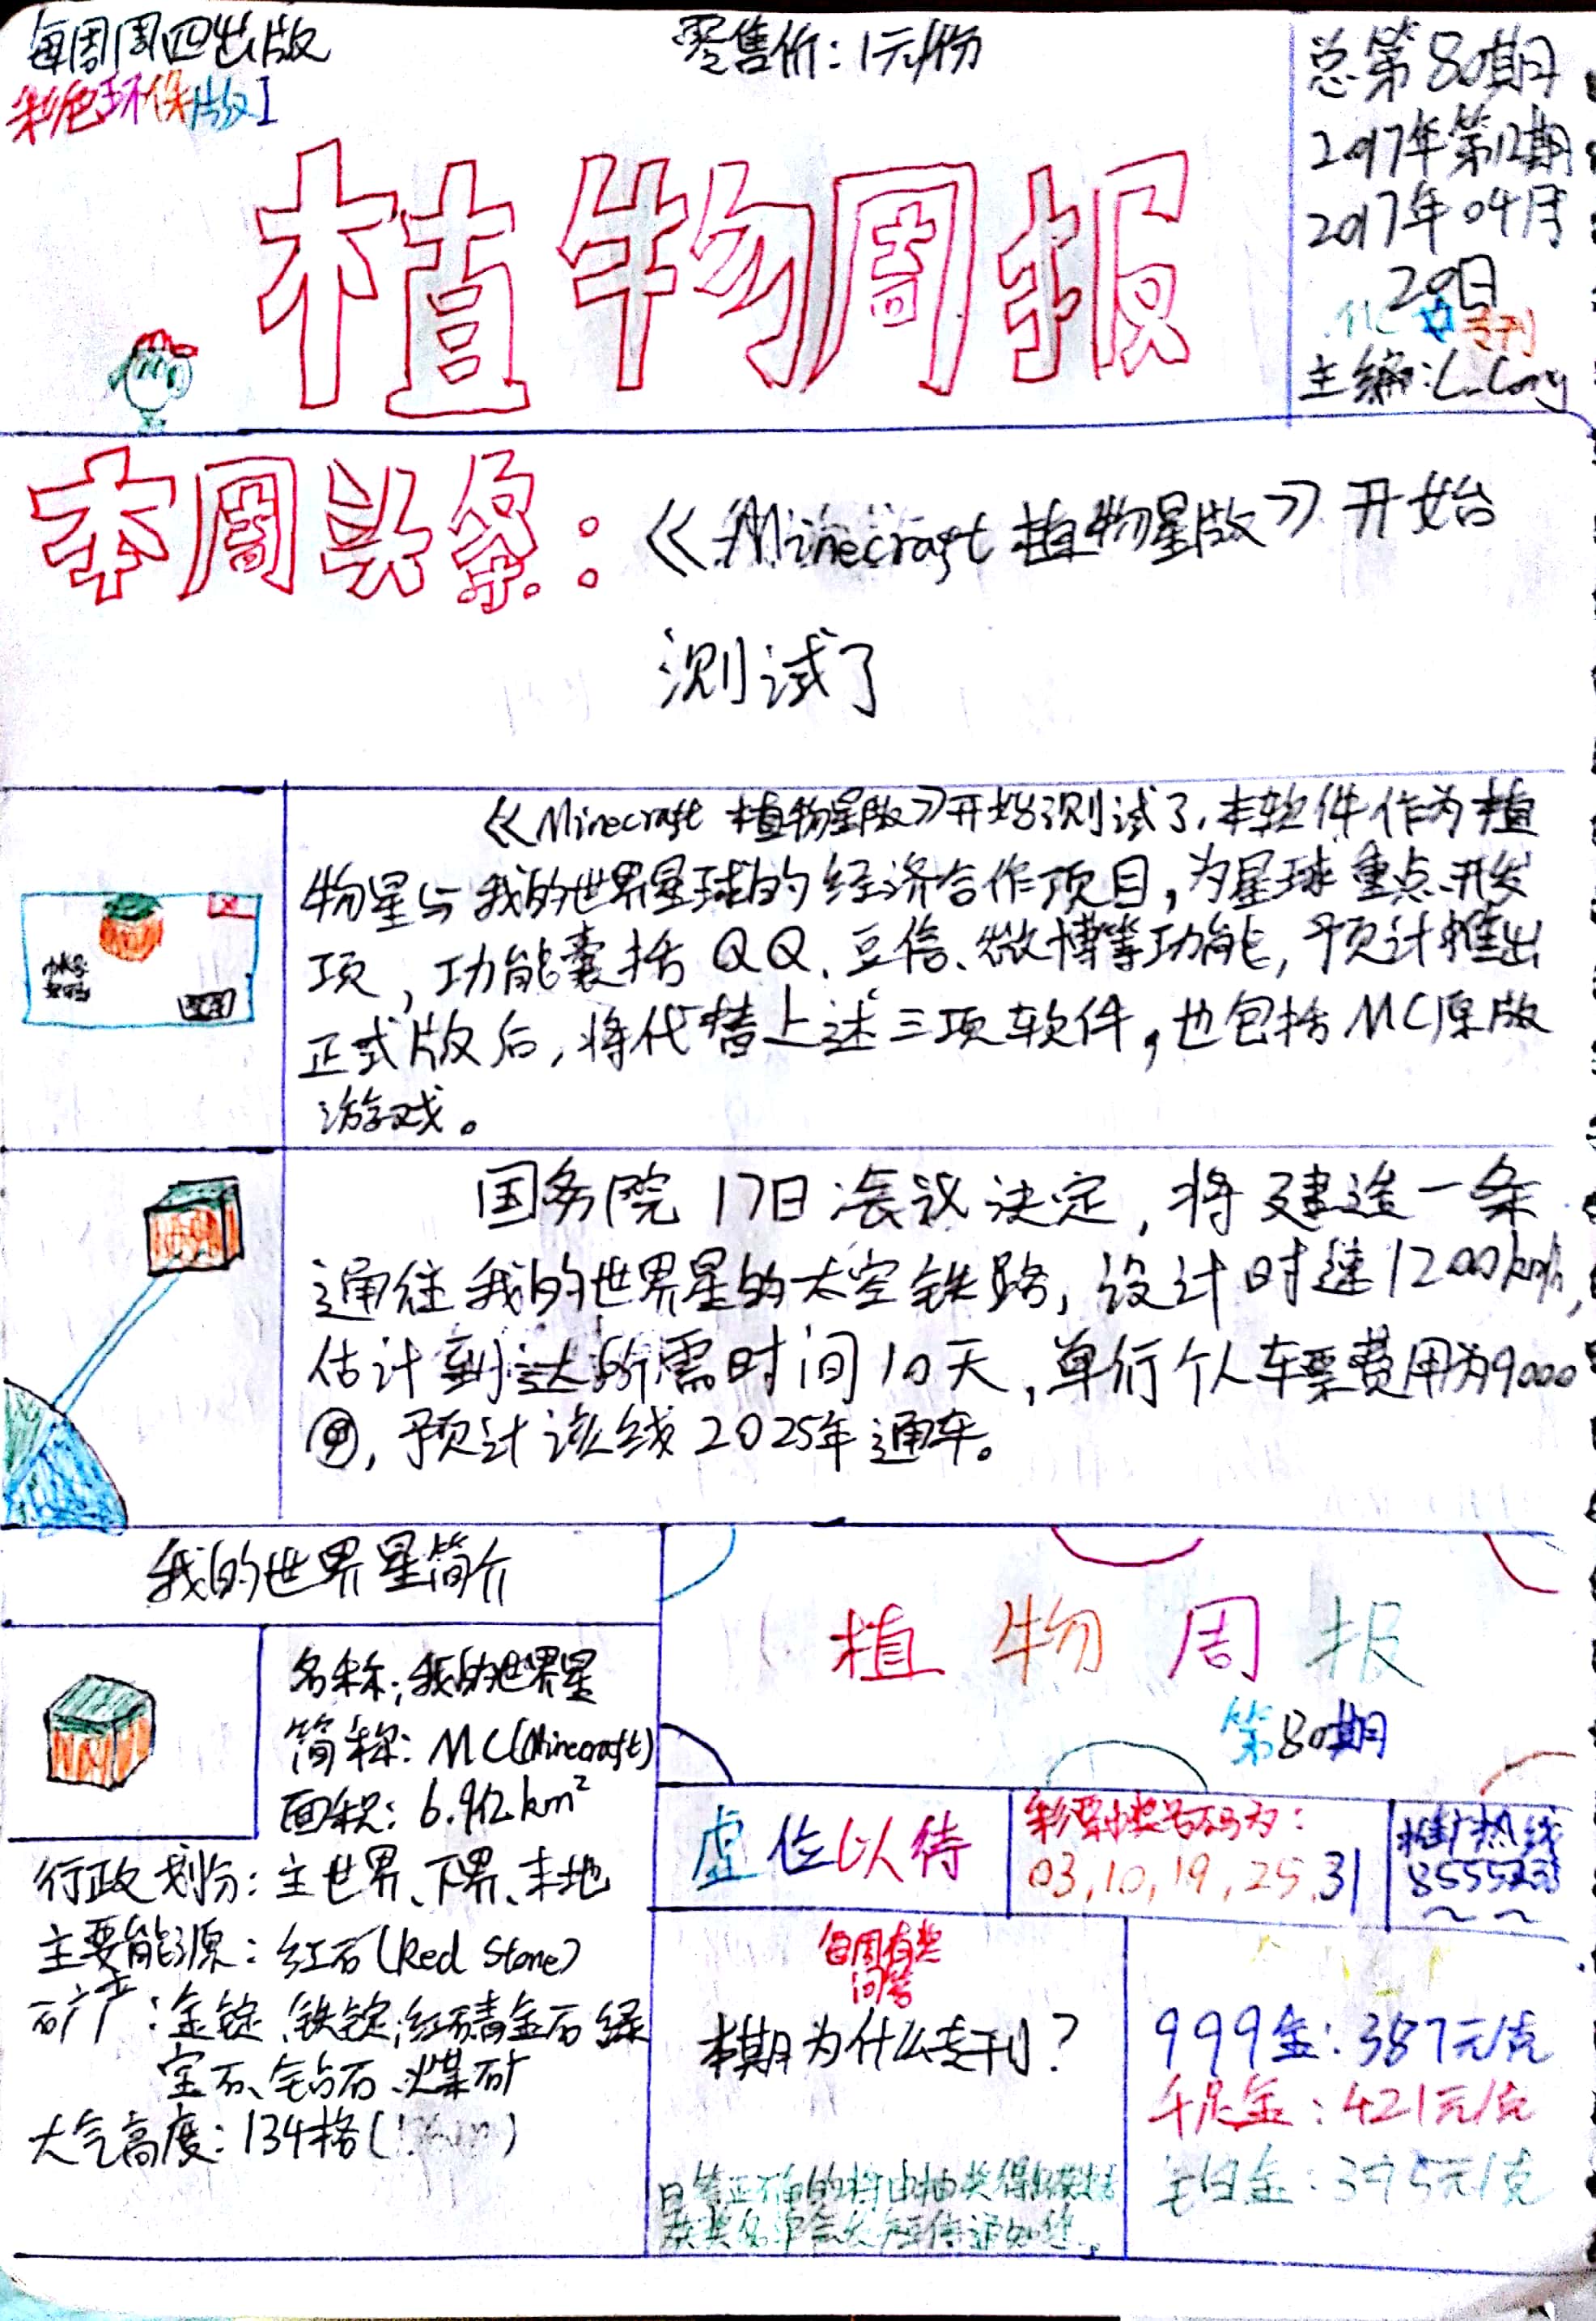 每周周四出版
彩色环保版I
零售价:1元/份
总第80期
2017年第12期
2017年04月
20日
专刊
主编:L_Cong
植物周报
本周头条:《Minecraft 植物星版》开始
测试了
《Minecraft 植物星版》开始测试了,本软件作为植
物星与我的世界星球的经济合作项目,为星球重点开发
项,功能囊括QQ、豆信、微博等功能,预计推出
正式版后,将代替上述三项软件,也包括MC原版
游戏。
国务院17日会议决定,将建造一条
通往我的世界星的太空铁路,设计时速1200km/h,
估计到达所需时间10天,单行个人车票费用为9000
,预计该线2025年通车。
我的世界星简介
名称:我的世界星
简称:MC(Minecraft)
面积:6.9亿km²
行政划分:主世界、下界、末地
主要能源:红石(Red Stone)
矿产:金锭、铁锭、红石青金石绿
宝石、钻石、煤矿
大气高度:134格
植物周报
第80期
虚位以待
彩票中奖号码为:
03,10,19,25,31
推广热线
每周有奖
问答
本期为什么专刊?
获奖名单会
999金:387元/克
千足金:421元/克
铂金:395元/克